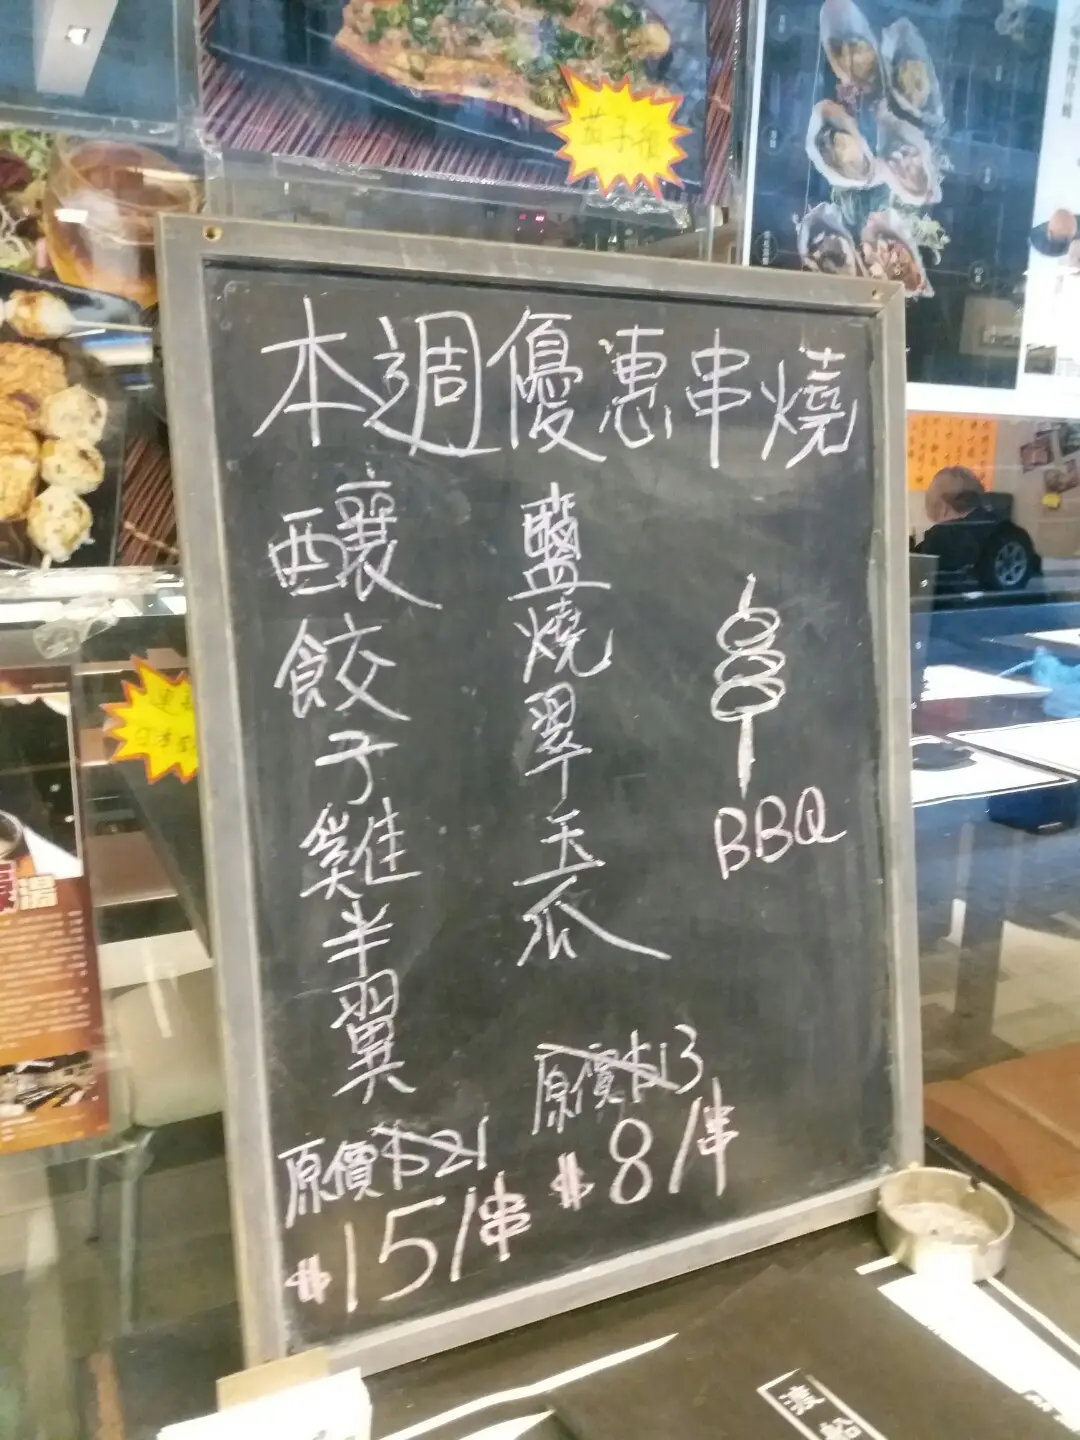 本週優惠串燒
釀餃子雞半翼
原價$21
$15/串
鹽燒翠玉瓜
原價$13
$8/串
BBQ
茄子
湯